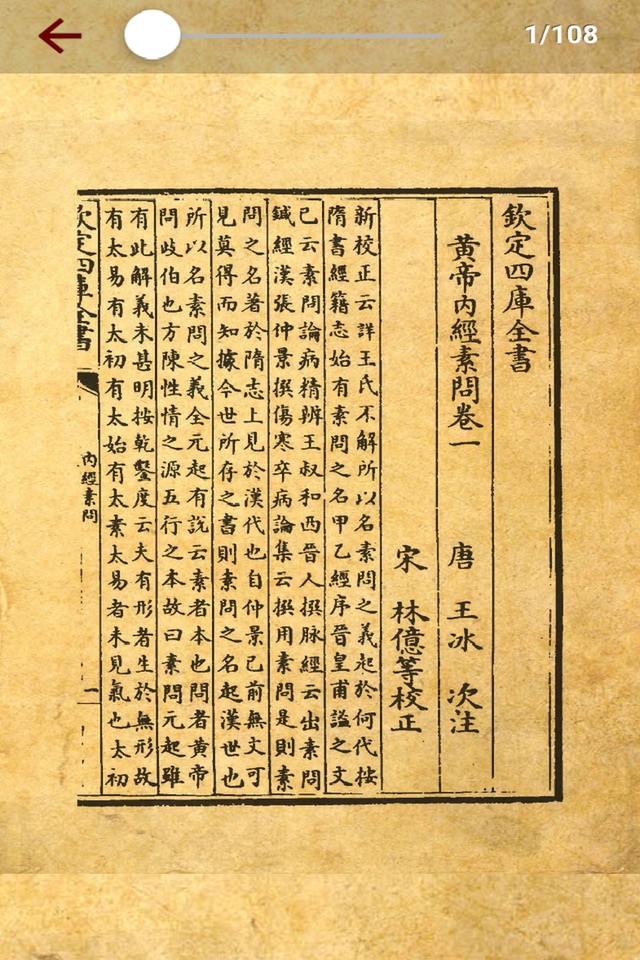 1/108
欽定四庫全書
黄帝内經素問卷一 唐 王冰 次注
宋 林億等校正
新校正云詳王氏不解所以名素問之義起於何代按
隋書經籍志始有素問之名甲乙經序晉皇甫謐之文
已云素問論病精辨王叔和西晉人撰脉經云出素問
鍼經漢張仲景撰傷寒卒病論集云撰用素問是則素
問之名著於隋志上見於漢代也自仲景已前無文可
見莫得而知據今世所存之書則素問之名起漢世也
所以名素問之義全元起有說云素者本也問者黄帝
問歧伯也方陳性情之源五行之本故曰素問元起雖
有此解義未甚明按乾鑿度云夫有形者生於無形故
有太易有太初有太始有太素太易者未見氣也太初
欽定四庫全書
内經素問
一